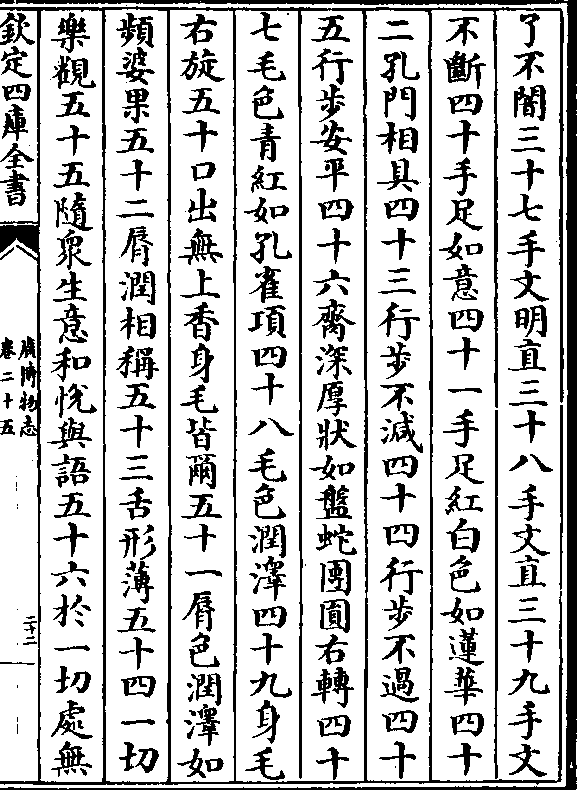 了不闇三十七手文明直三十八手文直三十九手文
不斷四十手足如意四十一手足紅白色如蓮華四十
二孔門相具四十三行歩不減四十四行歩不過四十
五行歩安平四十六齋深厚狀如盤蛇團圓右轉四十
七毛色青紅如孔雀項四十八毛色潤澤四十九身毛
右旋五十口出無上香身毛皆爾五十一脣色潤澤如
頻婆果五十二脣潤相稱五十三舌形薄五十四一切
樂觀五十五隨衆生意和悅與語五十六於一切處無
欽定四庫全書
廣博物志
卷二十五
二十二